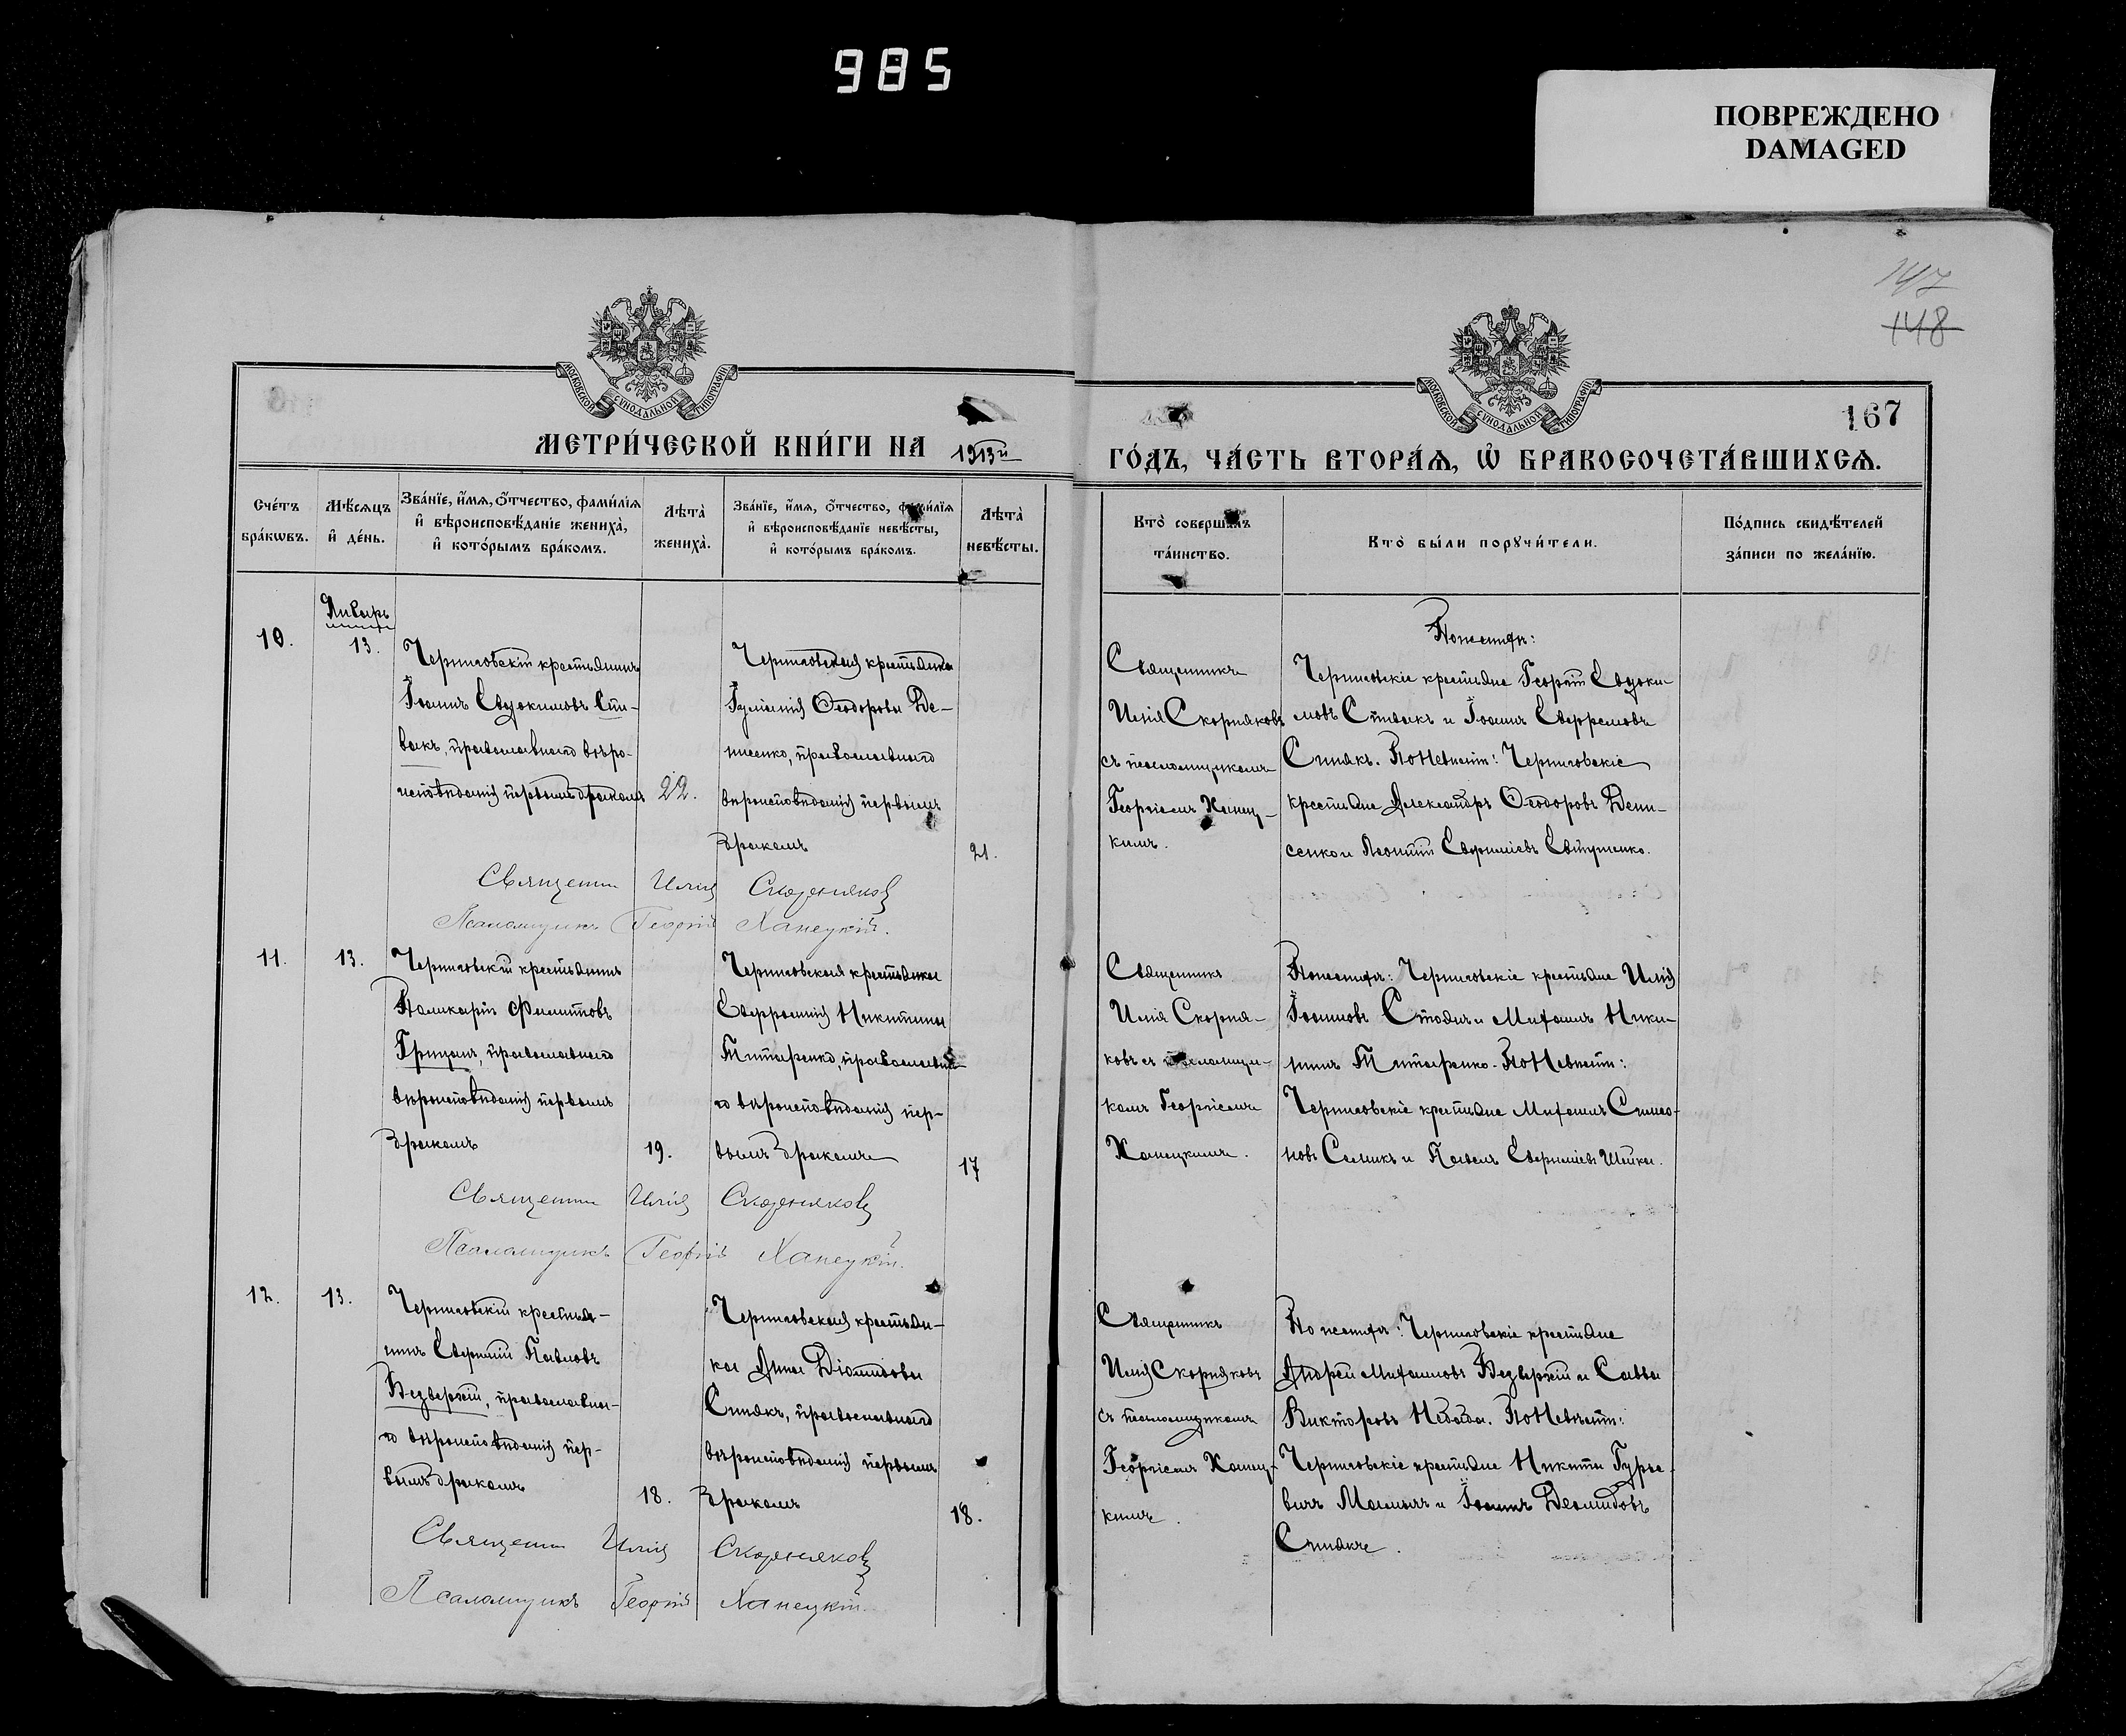 985
ПОВРЕЖДЕНО
DAMAGED
147
148
МОСКОВСКОЙ СѴНОДАЛЬНОЙ ТИПОГРАФІИ
МОСКОВСКОЙ СѴНОДАЛЬНОЙ ТИПОГРАФІИ
167
МЕТРИ́ЧЕСКОЙ КНИ́ГИ НА 1913й
ГО́ДЪ, ЧА́СТЬ ВТОРА́Ѧ, Ѽ БРАКОСОЧЕТА́ВШИХСѦ.
Сче́тъ
бра́кѡвъ.
Мѣ́сяцъ
и҆ де́нь.
Зва́нїе, и҆́мя, ѻ҆́тчество, фами́лїя
и҆ вѣроисповѣ́данїе жениха̀,
и҆ кото́рымъ бра́комъ.
Лѣта̀
жениха̀.
Зва́нїе, и҆́мя, ѻ҆́тчество, фами́лїя
и҆ вѣроисповѣ́данїе невѣ́сты,
и҆ кото́рымъ бра́комъ.
Лѣта̀
невѣ́сты.
Кто̀ соверша́лъ
та́инство.
Кто̀ бы́ли порꙋчи́тели.
По́дпись свидѣ́телей
за́писи по жела́нїю.
Январь
10.
13.
Черниговскій крестьянинъ
Іоаннъ Евдокимовъ Спи-
вакъ, православнаго вѣро-
исповѣданія первымъ бракомъ
22.
Черниговская крестьянка
Іуліанія Ѳеодорова Де-
нисенко, православнаго
вѣроисповѣданія первымъ
бракомъ
21.
Священникъ
Илія Скорняковъ
съ псаломщикомъ
Георгіемъ Ханец-
кимъ.
По женихѣ:
Черниговскіе крестьяне Георгій Евдоки-
мовъ Спивакъ и Іоаннъ Евфремовъ
Спиякъ. По невѣстѣ: Черниговскіе
крестьяне Александръ Ѳеодоровъ Дени-
сенко и Леонтій Евфиміевъ Евтушенко.
Священник Илія Скорняков
Псаломщикъ Георгій Ханецкій.
11.
13.
Черниговскій крестьянинъ
Поликарпъ Филипповъ
Грицанъ, православнаго
вѣроисповѣданія первымъ
бракомъ
19.
Черниговская крестьянка
Евфросинія Никитина
Титаренко, православна-
го вѣроисповѣданія пер-
вымъ бракомъ
17
Священникъ
Илія Скорня-
ковъ съ псаломщи-
комъ Георгіемъ
Ханецкимъ.
По женихѣ: Черниговскіе крестьяне Илія
Іоанновъ и Михаилъ Ники-
тинъ Титаренко. По невѣстѣ:
Черниговскіе крестьяне Михаилъ Симео-
новъ и Павелъ Евфиміевъ Шейка.
Священник Илія Скорняков
Псаломщикъ Георгій Ханецкій.
12.
13.
Черниговскій крестья-
нинъ Евфимій Павловъ
Безверхій, православна-
го вѣроисповѣданія пер-
вымъ бракомъ
18.
Черниговская крестьян-
ка Анна Діомидова
Спиякъ, православнаго
вѣроисповѣданія первымъ
бракомъ
18.
Священникъ
Илія Скорняковъ
съ псаломщикомъ
Георгіемъ Ханец-
кимъ.
По женихѣ: Черниговскіе крестьяне
Андрей Михаиловъ Безверхій и Савва
Викторовъ. По невѣстѣ:
Черниговскіе крестьяне Никита Гурье-
вичъ и Іоаннъ Деомидовъ
Спиякъ.
Священник Илія Скорняков
Псаломщикъ Георгій Ханецкій.